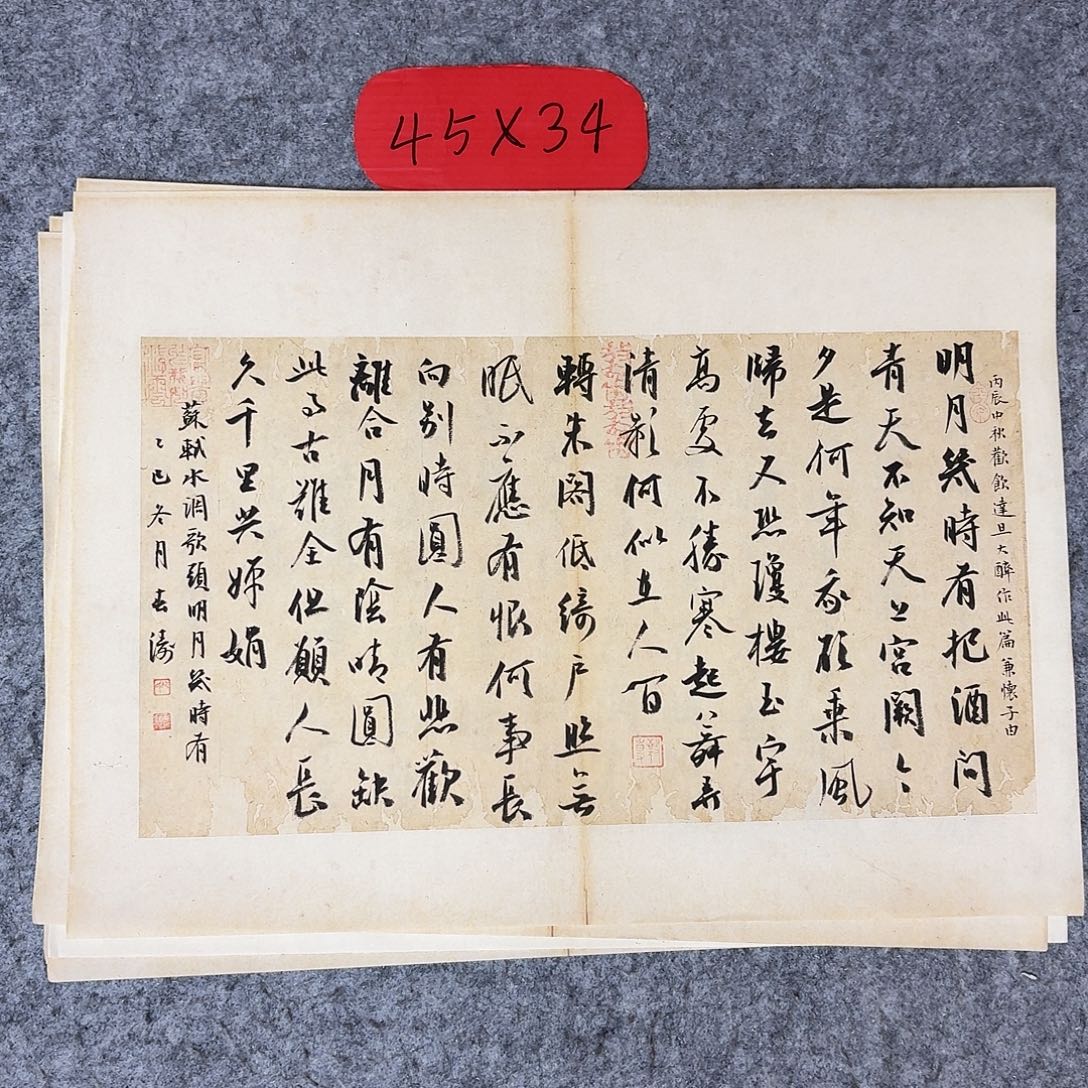 45X34
丙辰中秋歡飲達旦大醉作此篇兼懷子由
明月幾時有把酒問
青天不知天上宮闕今
夕是何年我欲乘風
歸去又恐瓊樓玉宇
高處不勝寒起舞弄
清影何似在人間
轉朱閣低綺戶照無
眠不應有恨何事長
向別時圓人有悲歡
離合月有陰晴圓缺
此事古難全但願人長
久千里共嬋娟
蘇軾水調歌頭明月幾時有
乙巳冬月